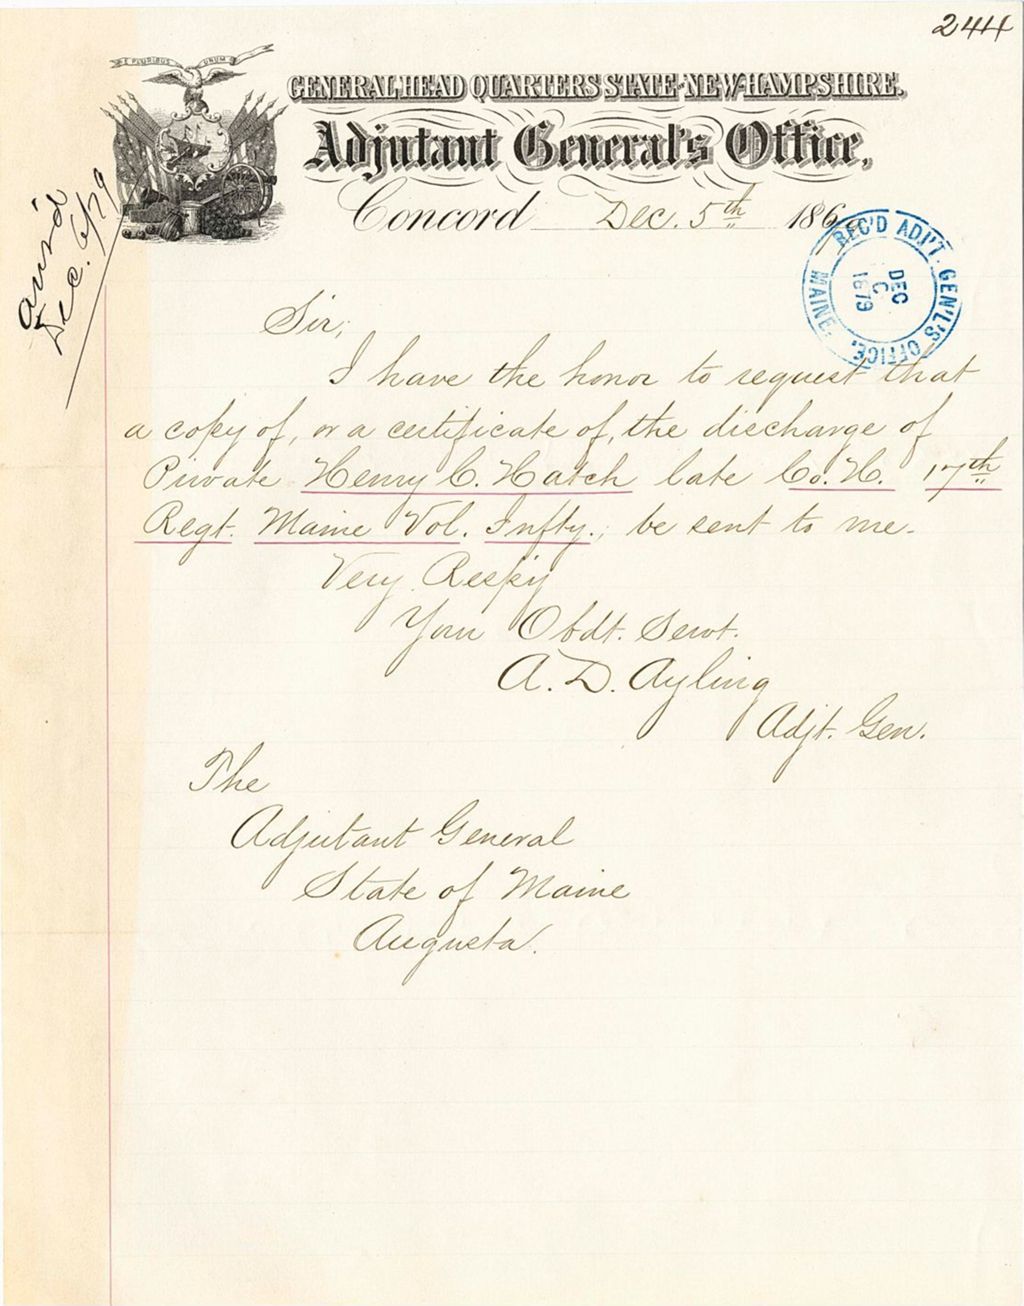 244
E PLURIBUS UNUM
GENERAL HEAD QUARTERS STATE-NEW-HAMPSHIRE.
Adjutant General's Office,
Concord Dec. 5th 186
REC'D ADJ'T. GEN'L'S OFFICE, MAINE.
DEC
C
1879
ans'd
Dec. 6/79
Sir,
I have the honor to request that
a copy of, or a certificate of, the discharge of
Private Henry C. Hatch late Co. H. 17th
Regt. Maine Vol. Infty., be sent to me.
Very Respy
Your Obdt. Servt.
A. D. Ayling
Adjt. Gen.
The
Adjutant General
State of Maine
Augusta.